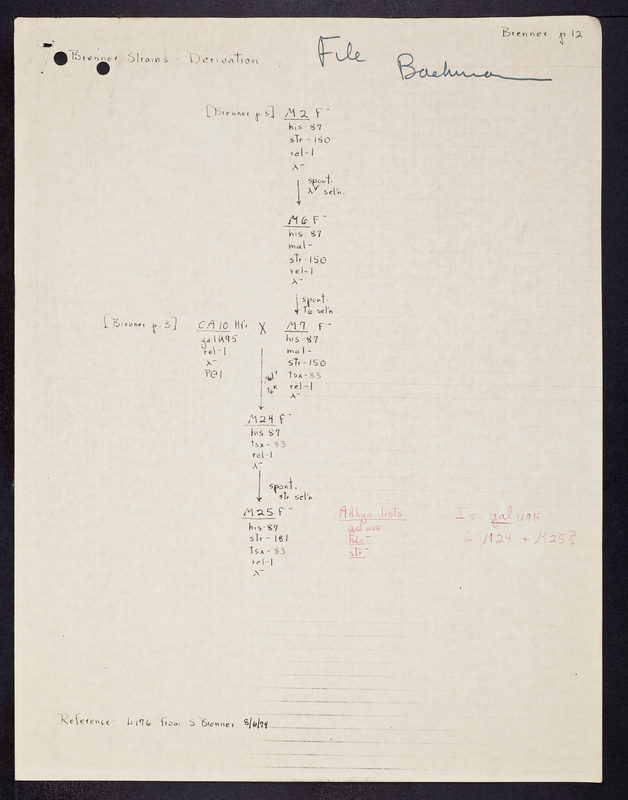 Brenner p.12
Brenner Strains - Derivation
File
Bachmann
[Brenner p.5] M2 F-
his-87
str-150
rel-1
λ-
spont.
λv seln.
M6 F-
his-87
mal-
str-150
rel-1
λ-
spont.
T6 seln.
[Brenner p.3] CA10 Hfr X M7 F-
galU95
rel-1
λ-
PO1
his-87
mal-
str-150
tsx-83
rel-1
λ-
Mal+
T6R
M24 F-
his 87
tsx-83
rel-1
λ-
spont.
str seln.
M25 F-
his-87
str-181
tsx-83
rel-1
λ-
Adhya lists
gal U95
his-
str-
Is gal U95
in M24 + M25?
Reference: b176 from S Brenner 8/6/79